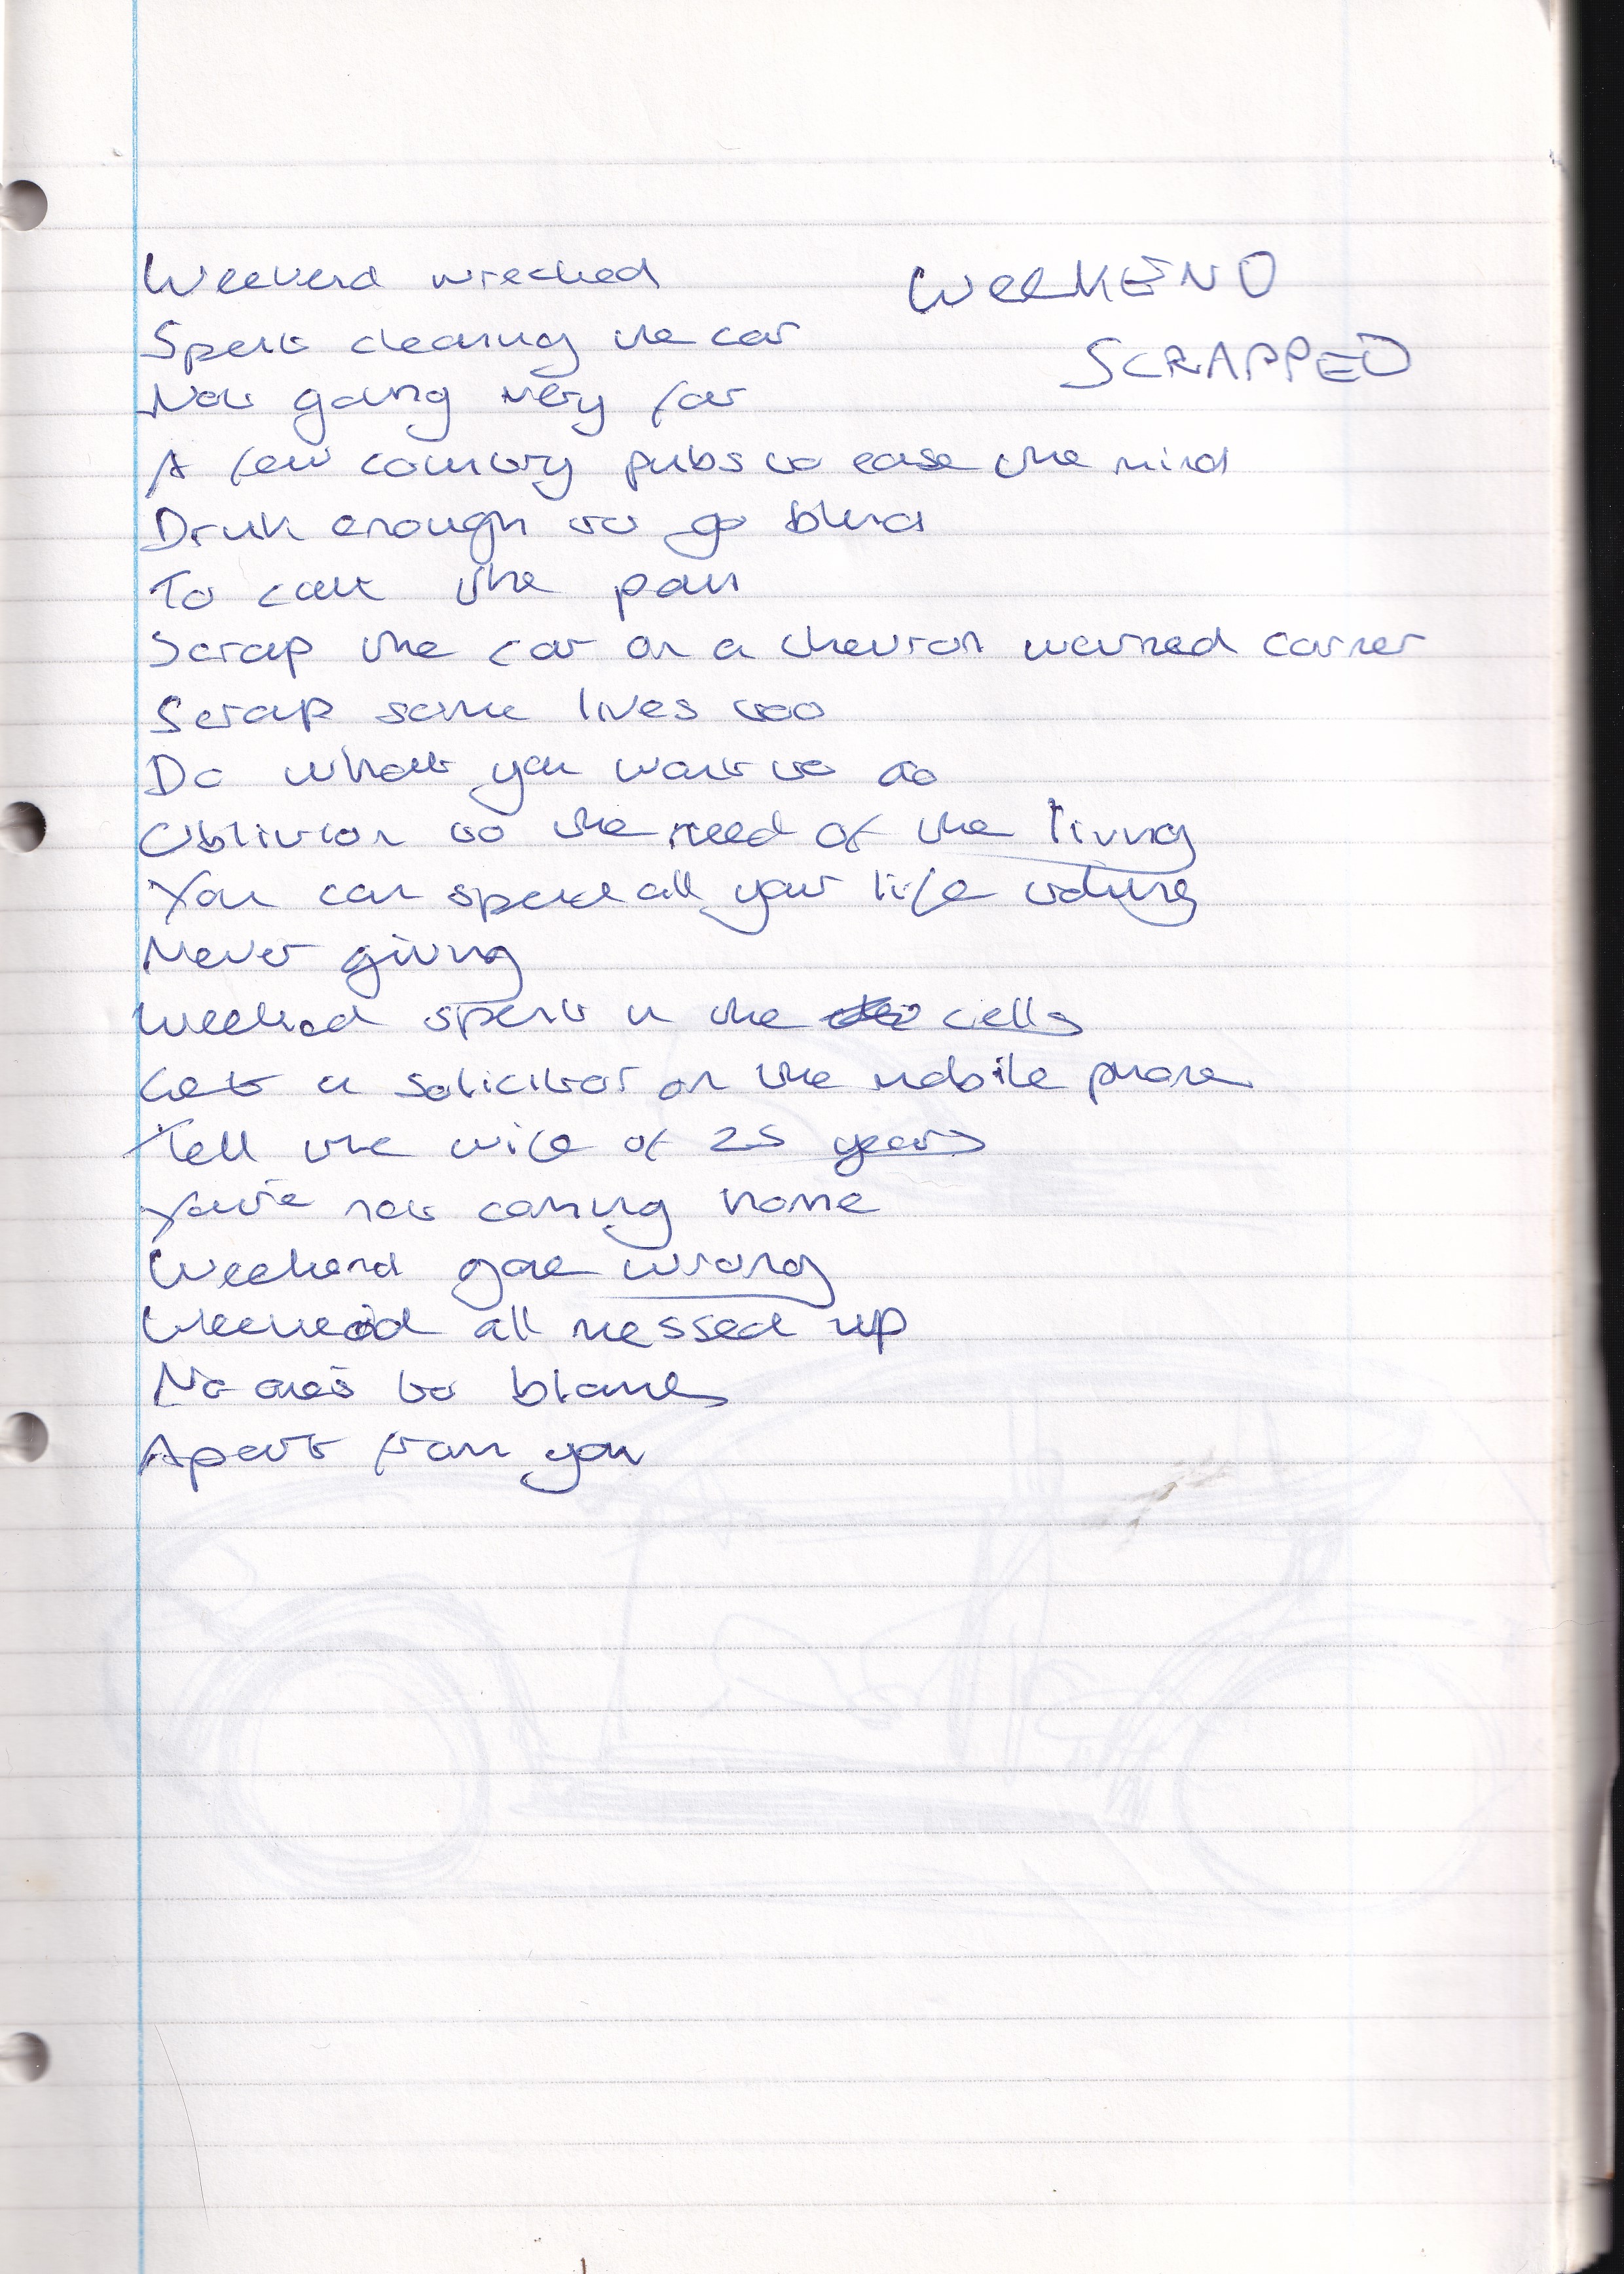 WEEKEND
SCRAPPED
Weekend wrecked
Spent cleaning the car
Not going very far
A few country pubs to ease the mind
Drink enough to go blind
To the pain
Scrap the car on a chevron warned corner
Scrap some lives too
Do what you want to do
Oblivion to the need of the living
You can spend all your life taking
Never giving
Weekend spent in the cells
Get a solicitor on the mobile phone
Tell the wife of 25 years
You're not coming home
Weekend gone wrong
Weekend all messed up
No one's to blame
Apart from you